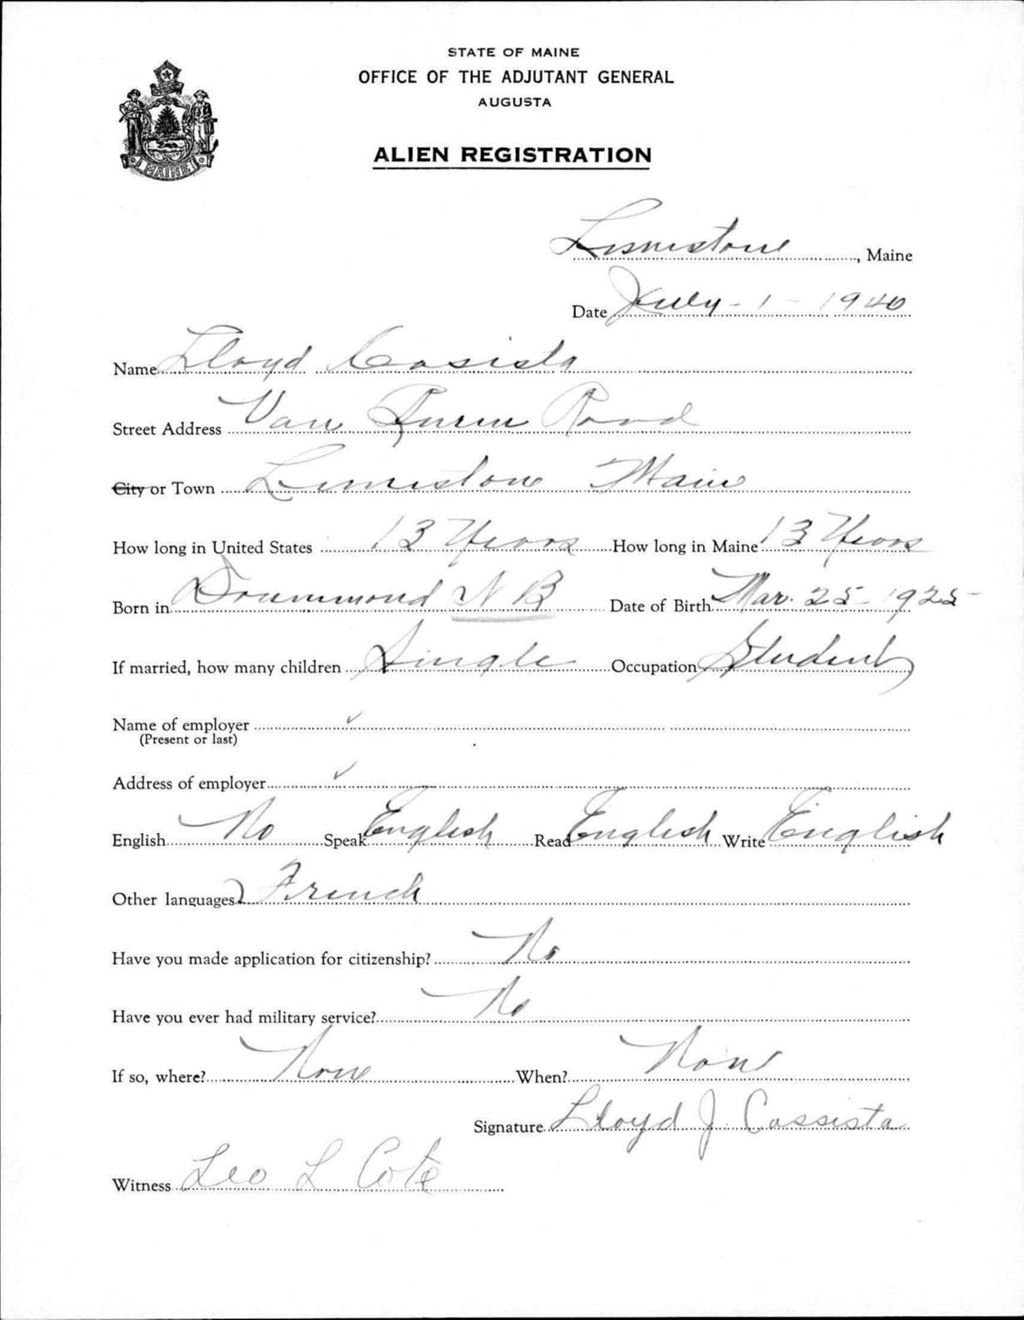 STATE OF MAINE
OFFICE OF THE ADJUTANT GENERAL
AUGUSTA
ALIEN REGISTRATION
MAINE
Limestone, Maine
Date July - 1 - 1940
Name Lloyd Casista
Street Address Van Buren Road
City or Town Limestone Maine
How long in United States 13 Years How long in Maine 13 Years
Born in Drummond N B Date of Birth Mar. 25 - 1925
If married, how many children Single Occupation Student
Name of employer ✓
(Present or last)
Address of employer ✓
English No Speak English Read English Write English
Other languages French
Have you made application for citizenship? No
Have you ever had military service? No
If so, where? None When? None
Signature Lloyd J Cassista
Witness Leo L Cote